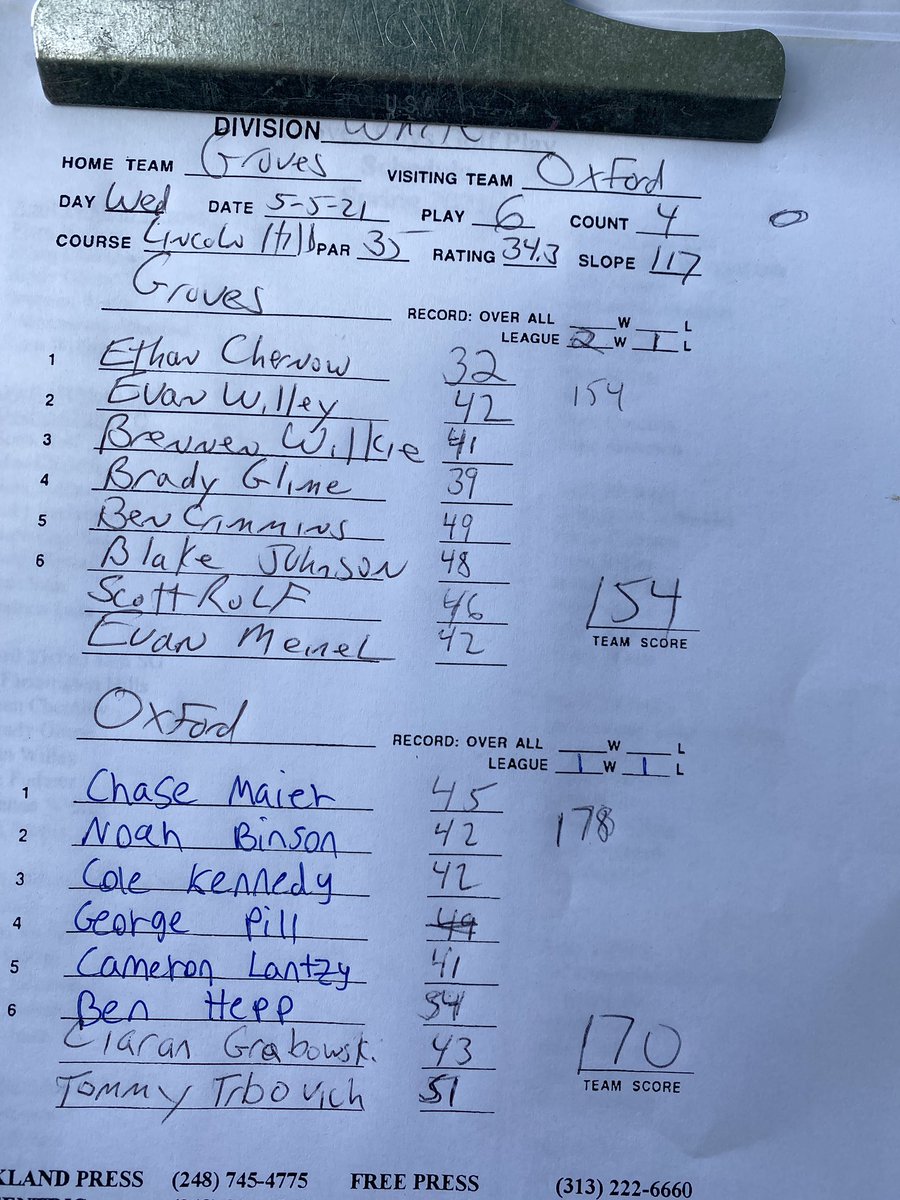 U.S.A.
DIVISION White
HOME TEAM Groves VISITING TEAM Oxford
DAY Wed DATE 5-5-21 PLAY 6 COUNT 4
COURSE Lincoln Hills PAR 35 RATING 34.3 SLOPE 117
Groves RECORD: OVER ALL ___W ___L
LEAGUE 2 W 1 L
1 Ethan Chernow 32
2 Evan Willey 42 154
3 Brennen Wilkie 41
4 Brady Glime 39
5 Ben Crimmins 49
6 Blake Johnson 48
Scott Rolf 46 154
Evan Meinel 42 TEAM SCORE
Oxford RECORD: OVER ALL ___W ___L
LEAGUE 1 W 1 L
1 Chase Maier 45
2 Noah Binson 42 178
3 Cole Kennedy 42
4 George Pill 49
5 Cameron Lantzy 41
6 Ben Hepp 54
Ciaran Grabowski 43 170
Tommy Trbovich 51 TEAM SCORE
KLAND PRESS (248) 745-4775 FREE PRESS (313) 222-6660